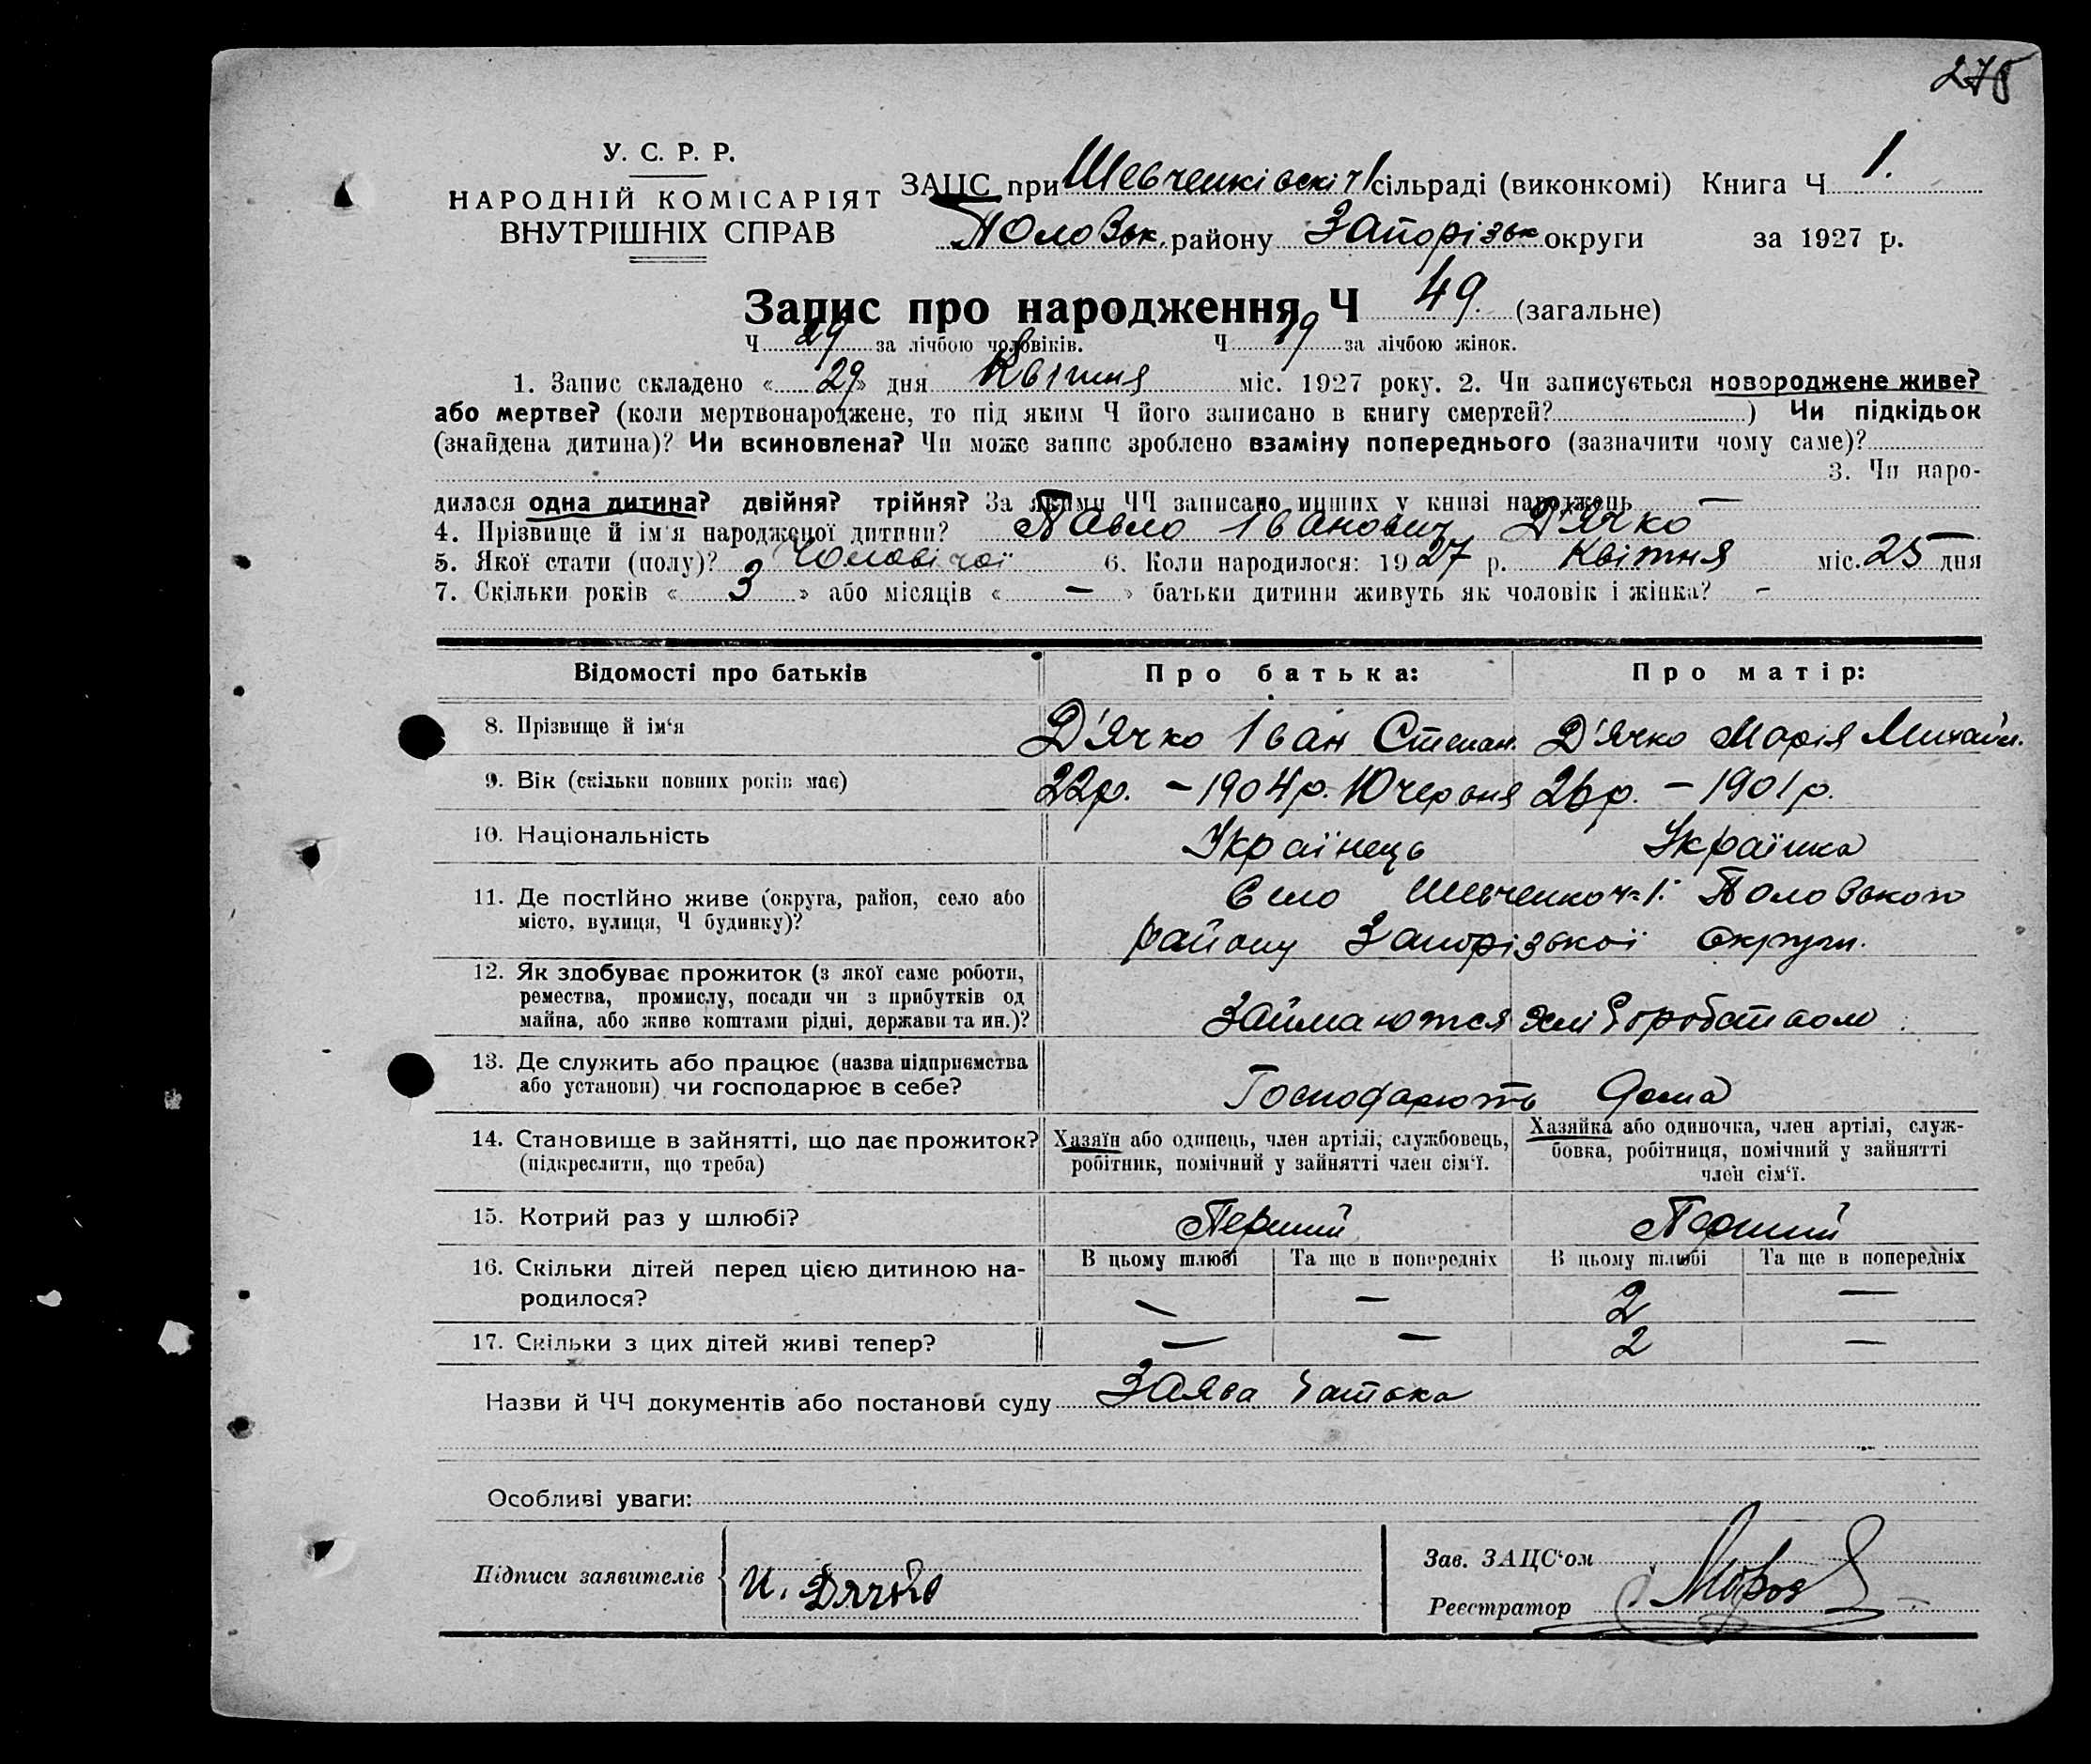 278
У. С. Р. Р.
НАРОДНІЙ КОМІСАРІЯТ
ВНУТРІШНІХ СПРАВ
ЗАЦС при Шевченківскі ч1 сільраді (виконкомі) Книга Ч 1.
Половьк. району Запорізьк округи за 1927 р.
Запис про народження Ч 49. (загальне)
Ч 29 за лічбою чоловіків. Ч за лічбою жінок.
1. Запис складено « 29 » дня Квітня міс. 1927 року. 2. Чи записується новороджене живе?
або мертве? (коли мертвонароджене, то під яким Ч його записано в книгу смертей? ) Чи підкідьок
(знайдена дитина)? Чи всиновлена? Чи може запис зроблено взаміну попереднього (зазначити чому саме)?
3. Чи наро-
дилася одна дитина? двійня? трійня? За якими ЧЧ записано инших у книзі народжень —
4. Прізвище й ім'я народженої дитини? Павло Іванович Д'ячко
5. Якої стати (полу)? Чоловічої 6. Коли народилося: 1927 р. Квітня міс. 25 дня
7. Скільки років « 3 » або місяців « — » батьки дитини живуть як чоловік і жінка? -
Відомості про батьків Про батька: Про матір:
8. Прізвище й ім'я Д'ячко Іван Степан. Д'ячко Марія Михайл.
9. Вік (скільки повних років має) 22р. - 1904р. 10 червня 26р. - 1901р.
10. Національність Українець Українка
11. Де постійно живе (округа, район, село або
місто, вулиця, Ч будинку)?
Село Шевченко ч-1. Половського
району Запорізької округи.
12. Як здобуває прожиток (з якої саме роботи,
ремества, промислу, посади чи з прибутків од
майна, або живе коштами рідні, держави та ин.)?
Займаються хліборобством
13. Де служить або працює (назва підприємства
або установи) чи господарює в себе?
Господарюють дома
14. Становище в зайнятті, що дає прожиток?
(підкреслити, що треба)
Хазяїн або одинець, член артілі, службовець,
робітник, помічний у зайнятті член сім'ї.
Хазяйка або одиночка, член артілі, служ-
бовка, робітниця, помічний у зайнятті
член сім'ї.
15. Котрий раз у шлюбі? Перший Перший
В цьому шлюбі Та ще в попередніх В цьому шлюбі Та ще в попередніх
16. Скільки дітей перед цією дитиною на-
родилося?
— — 2 —
17. Скільки з цих дітей живі тепер? — — 2 —
Назви й ЧЧ документів або постанови суду Заява батька
Особливі уваги:
Підписи заявителів И. Дячко
Зав. ЗАЦС'ом
Реєстратор